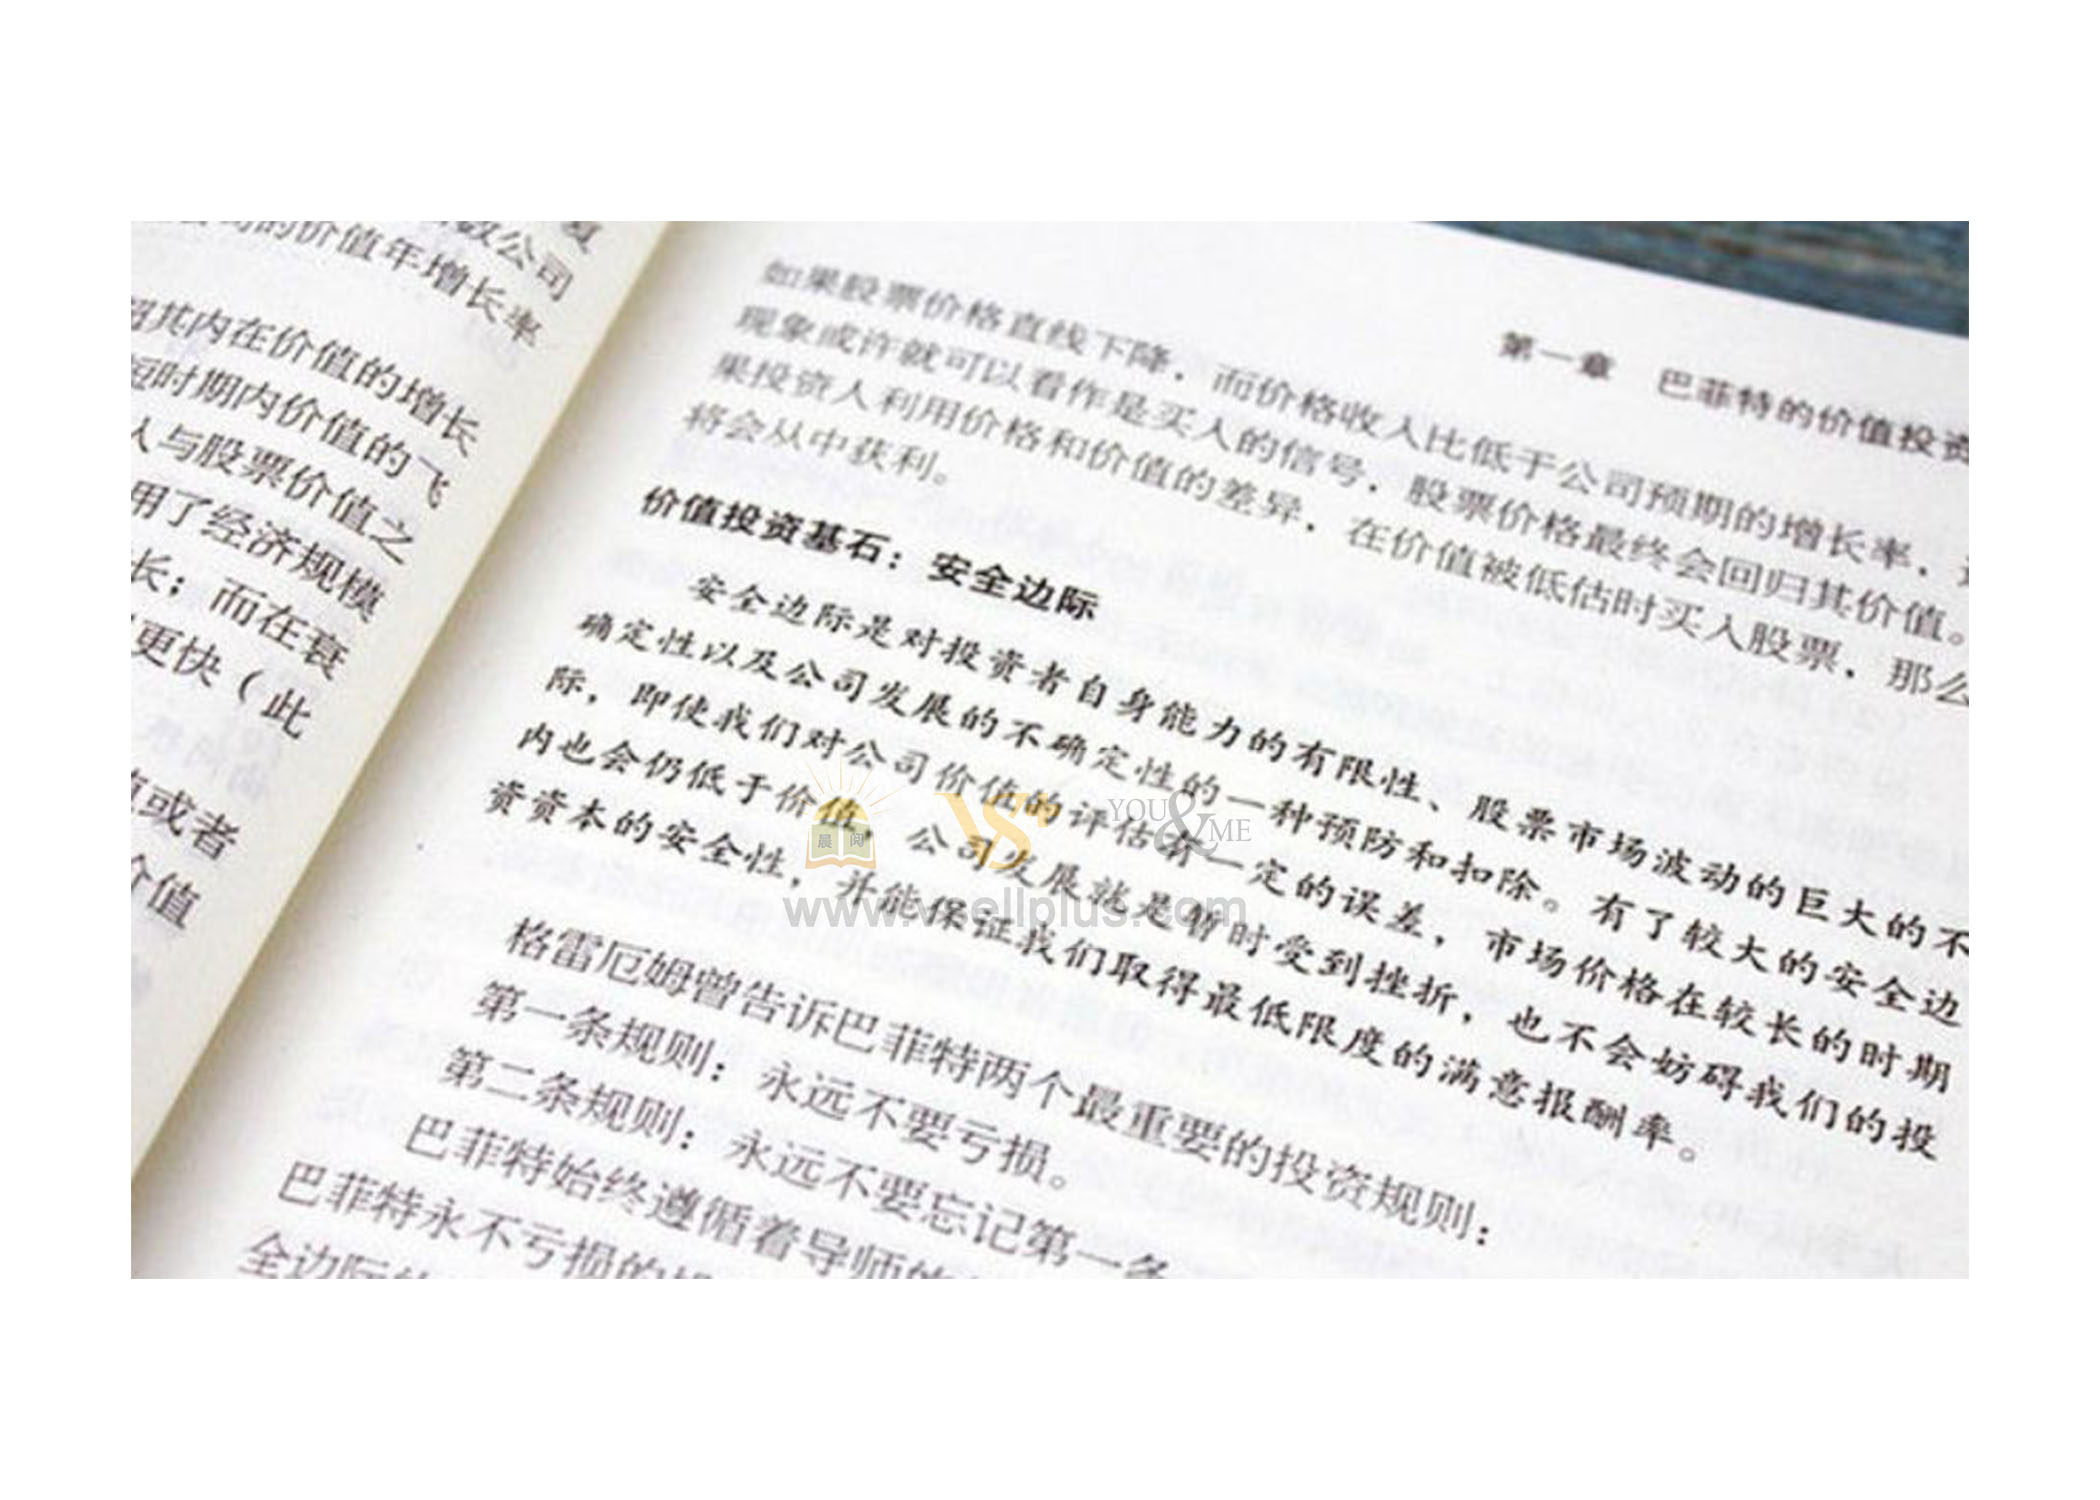 数公司
司的价值年增长率
其内在价值的增长
短时期内价值的飞
人与股票价值之
用了经济规模
长；而在衰
更快（此
值或者
价值
第一章 巴菲特的价值投资
如果股票价格直线下降，而价格收入比低于公司预期的增长率，
现象或许就可以看作是买入的信号，股票价格最终会回归其价值。
果投资人利用价格和价值的差异，在价值被低估时买入股票，那么
将会从中获利。
价值投资基石：安全边际
安全边际是对投资者自身能力的有限性、股票市场波动的巨大的不
确定性以及公司发展的不确定性的一种预防和扣除。有了较大的安全边
际，即使我们对公司价值的评估有一定的误差，市场价格在较长的时期
内也会仍低于价值，公司发展就是暂时受到挫折，也不会妨碍我们的投
资资本的安全性，并能保证我们取得最低限度的满意报酬率。
格雷厄姆曾告诉巴菲特两个最重要的投资规则：
第一条规则：永远不要亏损。
第二条规则：永远不要忘记第一条
巴菲特始终遵循着导师的
巴菲特永不亏损的
全边际
晨阅
VS
YOU&ME
www.vsellplus.com